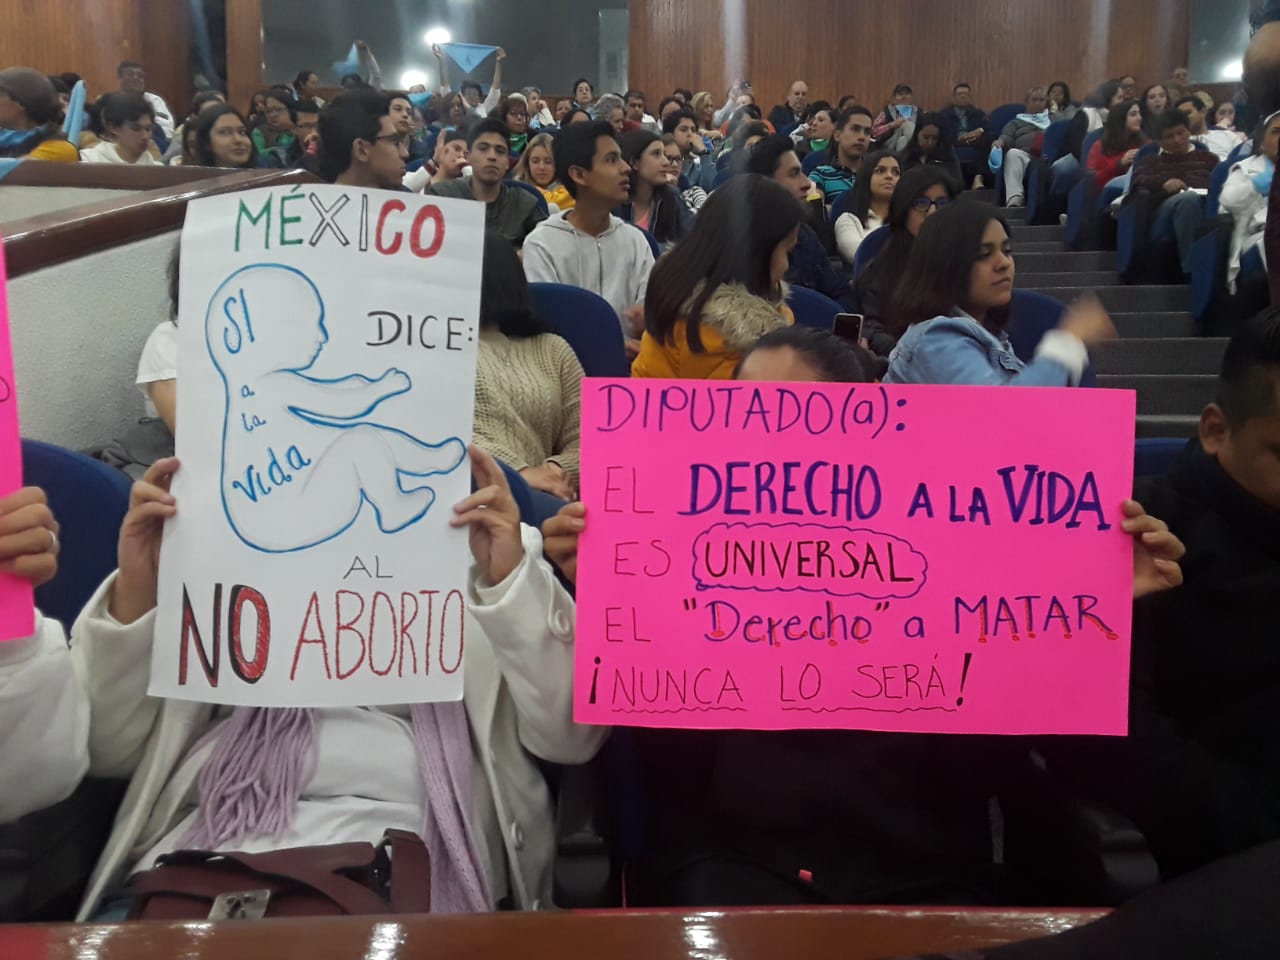 MÉXICO
DICE:
SI
a
la
vida
AL
NO ABORTO
DIPUTADO(a):
EL DERECHO A LA VIDA
ES UNIVERSAL
EL "Derecho" a MATAR
¡NUNCA LO SERÁ!